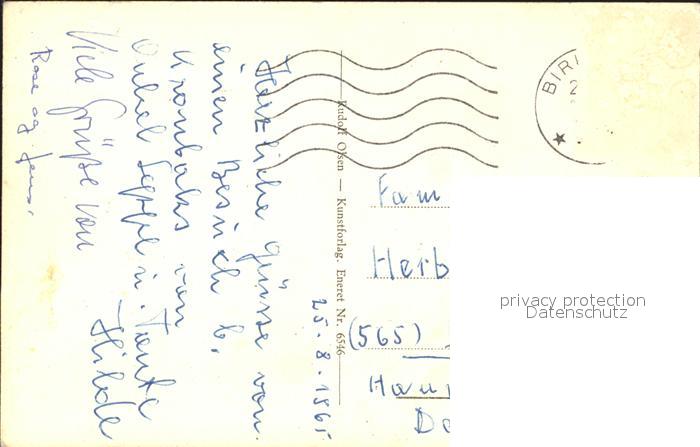 25.8.1965
Herzliche Grüsse von
einen Besuch b.
Kronbaks von
Onkel Seppl u. Tante
Hilde
Viele Grüße von
Rose og Jens.
Rudolf Olsen — Kunstforlag. Eneret Nr. 6546
BIRK
2
Fam
Herb
(565)
Hau
Da
privacy protection
Datenschutz